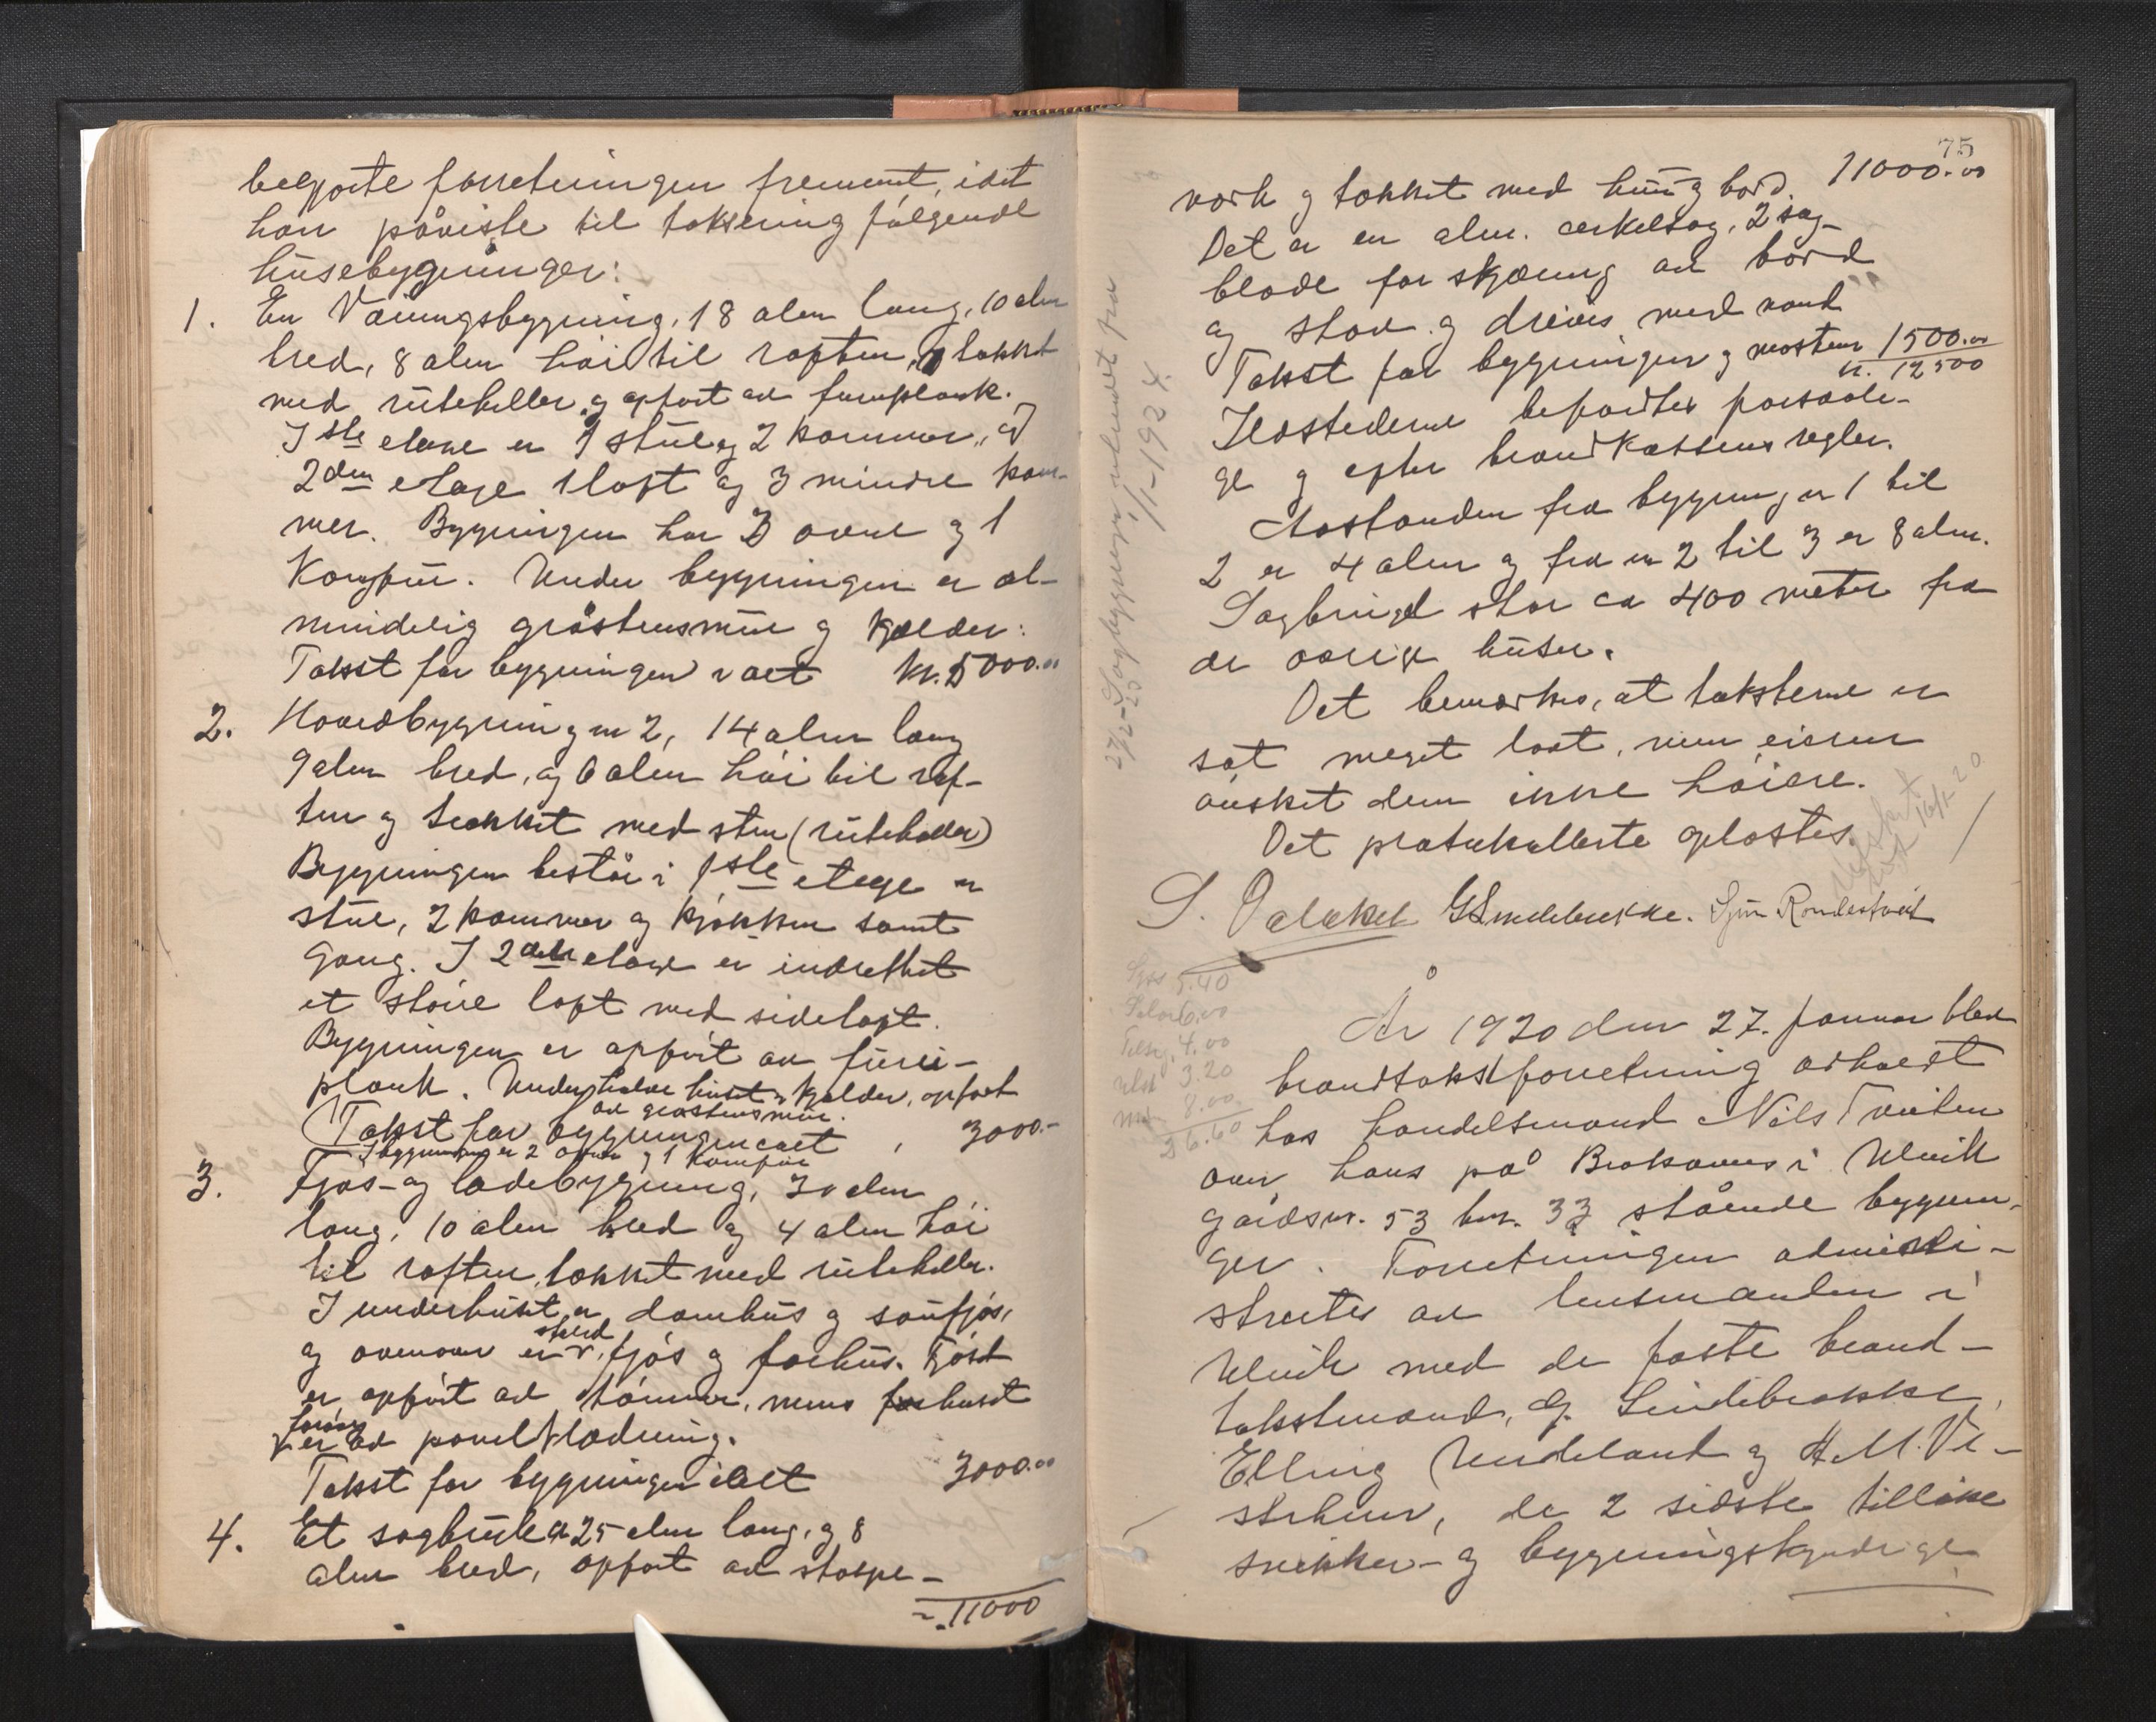 begjærte forretningen fremmet, idet
han påviste til taksering følgende
husebygninger:
1. En Vaaningsbygning, 18 alen lang, 10 alen
bred, 8 alen høi til raften, takket
med ruteheller og opført av furuplank.
I 1ste etage er 1 stue og 2 kammer, og
2den etage 1 loft og 3 mindre kam-
mer. Bygningen har 3 ovne og 1
Komfur. Under bygningen er al-
mindelig gråstensmur og kjælder:
Takst for bygningen i alt kr. 5000.00
2. Hovedbygning nr 2, 14 alen lang
9 alen bred, og 6 alen høi til raf-
ten og tækket med sten (ruteheller)
Bygningen består i 1ste etage av
stue, 2 kammer og kjøkken samt
Gang. I 2den etage er indrettet
et større loft med sideloft.
Bygningen er opført av furu-
plank. Under halve huset er kjælder, opført
av graastensmur.
Takst for bygningen i alt 3000.-
I bygningen er 2 ovne og 1 Komfur
3. Fjøs- og ladebygning, 30 alen
lang, 10 alen bred og 4 alen høi
til raften, tækket med ruteheller.
I underhuset er damhus og saufjøs,
og ovenover er stald, fjøs og forhus. Fjøset
er opført av tømmer, mens forhuset
er av panelklædning.
Takst for bygningen i alt 3000.00
4. Et sagbruk 25 alen lang, og 8
alen bred, opført av stolpe-
11000
75
verk og tækket med hun og bord. 11000.00
Det er en alm. cirkelsag, 2 sag-
blade for skjæring av bord
og stav og drives med vand
Takst for bygningen og maskinen 1500.00
kr. 12500
Ildstederne befandtes forsvarli-
ge og efter brandkassens regler.
Avstanden fra bygning nr 1 til
2 er 4 alen og fra nr 2 til 3 er 8 alen.
Sagbruget står ca 400 meter fra
de øvrige huser.
Det bemærkes, at taksterne er
sat meget lavt, men eieren
ønsket dem ikke høiere.
Det protokollerte oplæstes.
G Lindebrekke. Sjur Rondestveit
27/2-25 Sagbygningen utmeldt fra
1/1-1924.
5.40
6.00
4.00
3.20
8.00
26.60
År 1920 den 27. januar blev
brandtakstforretning avholdt
hos handelsmand Nils Tveiten
over hans på Brakanes i Ulvik
gårdsnr. 53 bnr. 33 stående bygnin-
ger. Forretningen admini-
strertes av lensmanden i
Ulvik med de faste brand-
takstmænd, G. Lindebrække,
Elling Undeland og H. M. Ve-
strheim, de 2 sidste tillike
snekker- og bygningskyndige